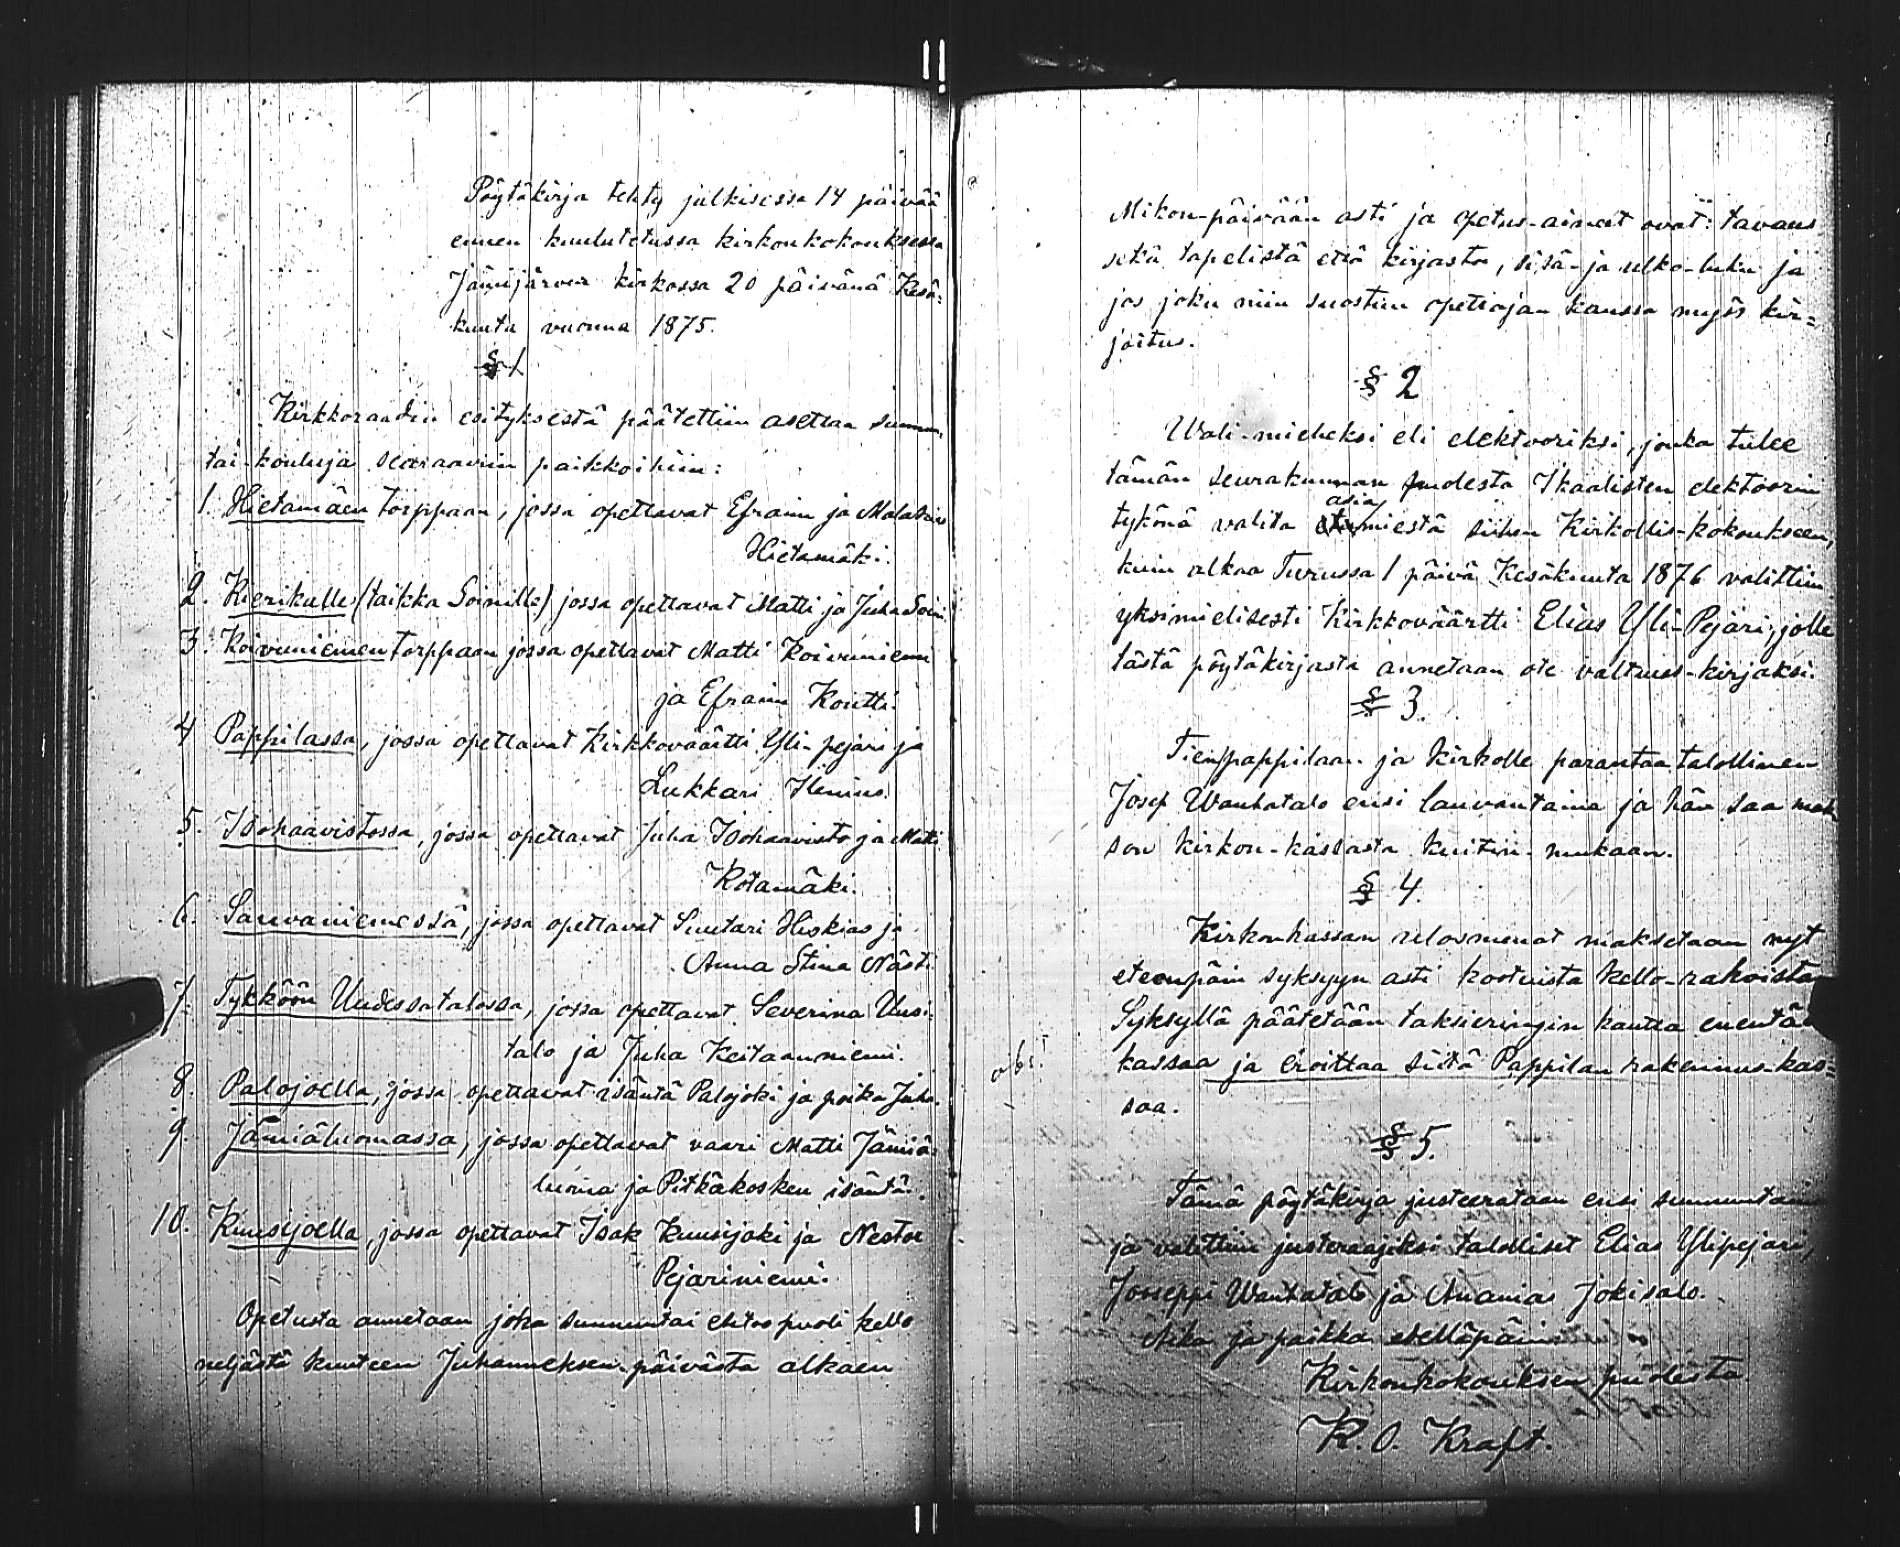 Pöytäkirja tehty julkisessa 14 päivää
ennen kuulutetussa kirkonkokouksessa
Jämijärven kirkossa 20 päivänä Kesä-
kuuta vuonna 1875.
§ 1
Kirkkoraadin esityksestä päätettiin asettaa sunnun-
tai-kouluja seuraaviin paikkoihin:
1. Hietamäen torppaan, jossa opettavat Efraim ja Malakias
Hietamäki.
2. Kierikalle (taikka Soinille) jossa opettavat Matti ja Juha Soini.
3. Koivuniemen torppaan jossa opettavat Matti Koivuniemi
ja Efraim Kontti.
4 Pappilassa, jossa opettavat Kirkkoväärtti Yli-pejari ja
Lukkari Ilenius.
5. Isohaavistossa, jossa opettavat Juha Isohaavisto ja Matti
Kotamäki.
6. Sauvaniemessä, jossa opettavat Suutari Hiskias ja
Anna Stina Nästi.
7. Tykköön Uudessatalossa, jossa opettavat Severina Uusi-
talo ja Juha Keitaanniemi.
8. Palojoella, jossa opettavat isäntä Palojoki ja poika Juha.
9. Jämiäluomassa, jossa opettavat vaari Matti Jämiä-
luoma ja Pitkäkosken isäntä.
10. Kuusijoella, jossa opettavat Isak Kuusijoki ja Nestor
Pejariniemi.
Opetusta annetaan joka sunnuntai ehtoopuoli kello
neljästä kuuteen Juhanneksen-päivästä alkaen
Mikon-päivään asti ja opetus-aineet ovat: tavaus
sekä tapelistä että kirjasta, sisä- ja ulko-luku ja
jos joku niin suostuu opettajan kanssa myös kir=
joitus.
§ 2
Wali-mieheksi eli elektooriksi, jonka tulee
tämän seurakunnan puolesta Ikaalisten elektoorin
asia
tykönä valita miestä siihen Kirkollis-kokoukseen,
kuin alkaa Turussa 1 päivä Kesäkuuta 1876 valittiin
yksimielisesti Kirkkoväärtti Elias Yli-Pejari, jolle
tästä pöytäkirjasta annetaan ote valtuus-kirjaksi.
§ 3.
Tien pappilaan ja kirkolle parantaa talollinen
Josef Wanhatalo ensi lauvantaina ja hän saa mak
son kirkon-kassasta kuitin-mukaan.
§ 4.
Kirkonkassan ulosmenot maksetaan nyt
eteenpäin syksyyn asti kootuista kello-rahoista
Syksyllä päätetään taksieringin kautta enentää
obs! kassaa ja eroittaa siitä Pappilan rakennus-kas=
saa.
§ 5.
Tämä pöytäkirja justeerataan ensi sunnuntaina
ja valittiin justeraajiksi talolliset Elias Ylipejari,
Joseppi Wanhatalo ja Ananias Jokisalo.
Aika ja paikka edelläpäin
Kirkonkokouksen puolesta
K. O. Kraft.